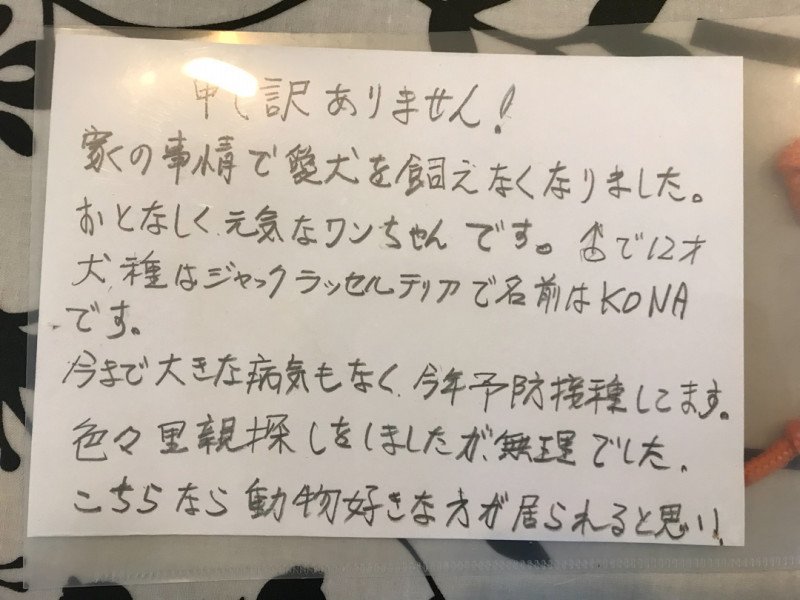 申し訳ありません!
家の事情で愛犬を飼えなくなりました。
おとなしく元気なワンちゃんです。♂で12才
犬種はジャックラッセルテリアで名前はKONA
です。
今まで大きな病気もなく、今年予防接種してます。
色々里親探しをしましたが、無理でした。
こちらなら動物好きな方が居られると思い、